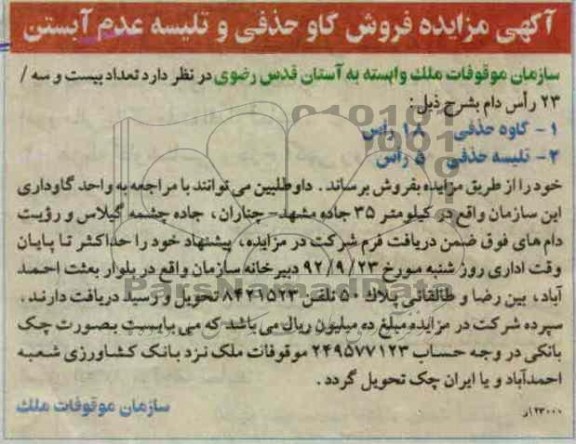 آگهی مزایده فروش گاو حذفی و تلیسه عدم آبستن
سازمان موقوفات ملک وابسته به آستان قدس رضوی در نظر دارد تعداد بیست و سه /
۲۳ رأس دام بشرح ذیل :
۱- گاوه حذفی ۱۸ رأس
۲- تلیسه حذفی ۵ رأس
خود را از طریق مزایده بفروش برساند . داوطلبین می توانند با مراجعه به واحد گاوداری
این سازمان واقع در کیلومتر ۳۵ جاده مشهد- چناران ، جاده چشمه گیلاس و رؤیت
دام های فوق ضمن دریافت فرم شرکت در مزایده، پیشنهاد خود را حداکثر تا پایان
وقت اداری روز شنبه مورخ ۹۲/۹/۲۳ دبیرخانه سازمان واقع در بلوار بعثت احمد
آباد ، بین رضا و طالقانی پلاک ۵۰ تلفن ۸۴۲۱۵۲۳ تحویل و رسید دریافت دارند .
سپرده شرکت در مزایده مبلغ ده میلیون ریال می باشد که می بایست بصورت چک
بانکی در وجه حساب ۲۴۹۵۷۷۱۲۳ موقوفات ملک نزد بانک کشاورزی شعبه
احمدآباد و یا ایران چک تحویل گردد .
سازمان موقوفات ملک
۱۲۳۰۰۰ر
ParsNamadData